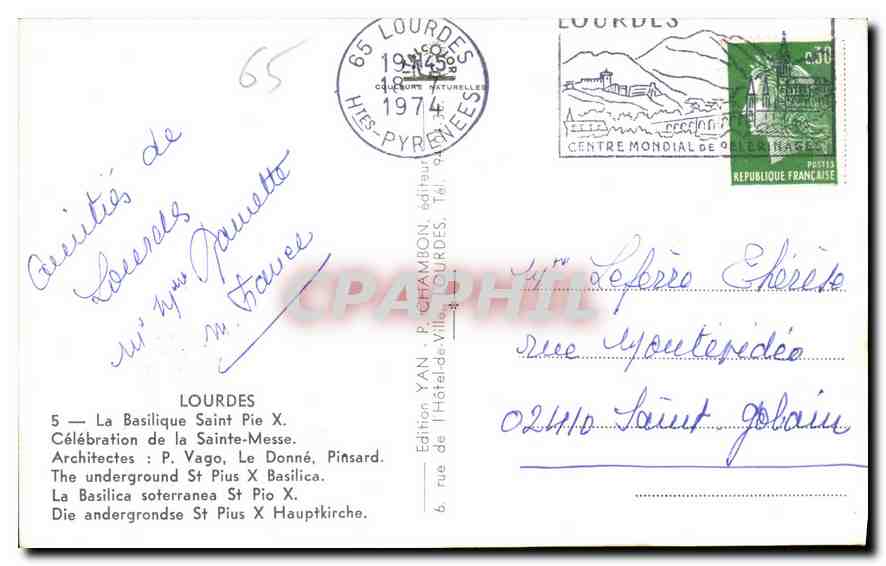 65
65 LOURDES
19H45
18-7
1974
HTES-PYRENEES
COULEURS NATURELLES
LOURDES
CENTRE MONDIAL DE PELERINAGES
0.30
POSTES
REPUBLIQUE FRANÇAISE
amitiés de
Lourdes
Mr Mme Ramette
m. France
CPAPHIL
Mme Lefèvre Thérèse
rue Montévidéo
02410 Saint Gobain
LOURDES
5 — La Basilique Saint Pie X.
Célébration de la Sainte-Messe.
Architectes : P. Vago, Le Donné, Pinsard.
The underground St Pius X Basilica.
La Basilica soterranea St Pio X.
Die andergrondse St Pius X Hauptkirche.
Edition YAN - P. CHAMBON, éditeur
6, rue de l'Hôtel-de-Ville, LOURDES. Tél.